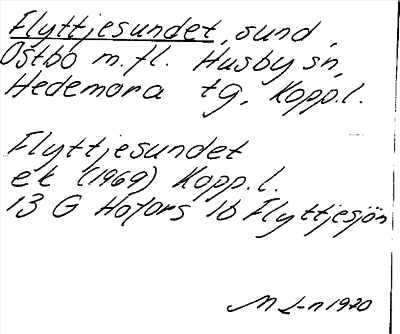 Flyttjesundet, sund,
Östbo m.fl. Husby sn,
Hedemora tg, Kopp.l.
Flyttjesundet
ek (1969) Kopp.l.
13 G Hofors 1b Flyttjesjön
M L-n 1970